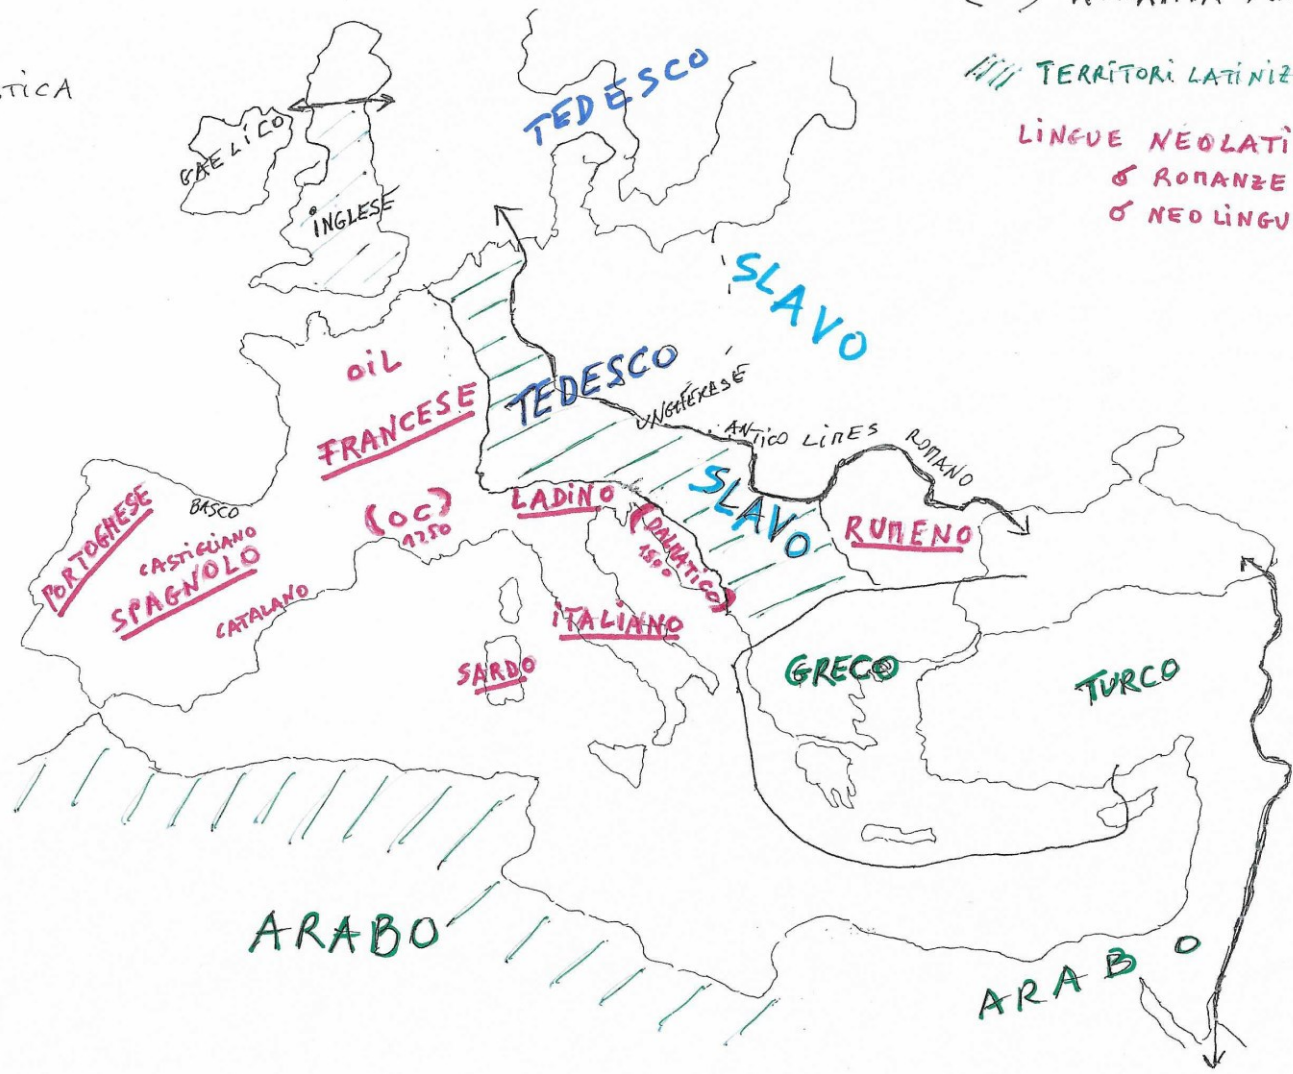 TERRITORI LATINIZ
TICA
LINGUE NEOLATI
O ROMANZE
O NEOLINGU
TEDESCO
GAELICO
INGLESE
SLAVO
OIL
FRANCESE
TEDESCO
UNGHERESE
ANTICO LIMES ROMANO
PORTOGHESE
BASCO
CASTIGLIANO
SPAGNOLO
CATALANO
(OC)
1250
LADINO
(DALMATICO)
1800
SLAVO
RUMENO
ITALIANO
SARDO
GRECO
TURCO
ARABO
ARABO